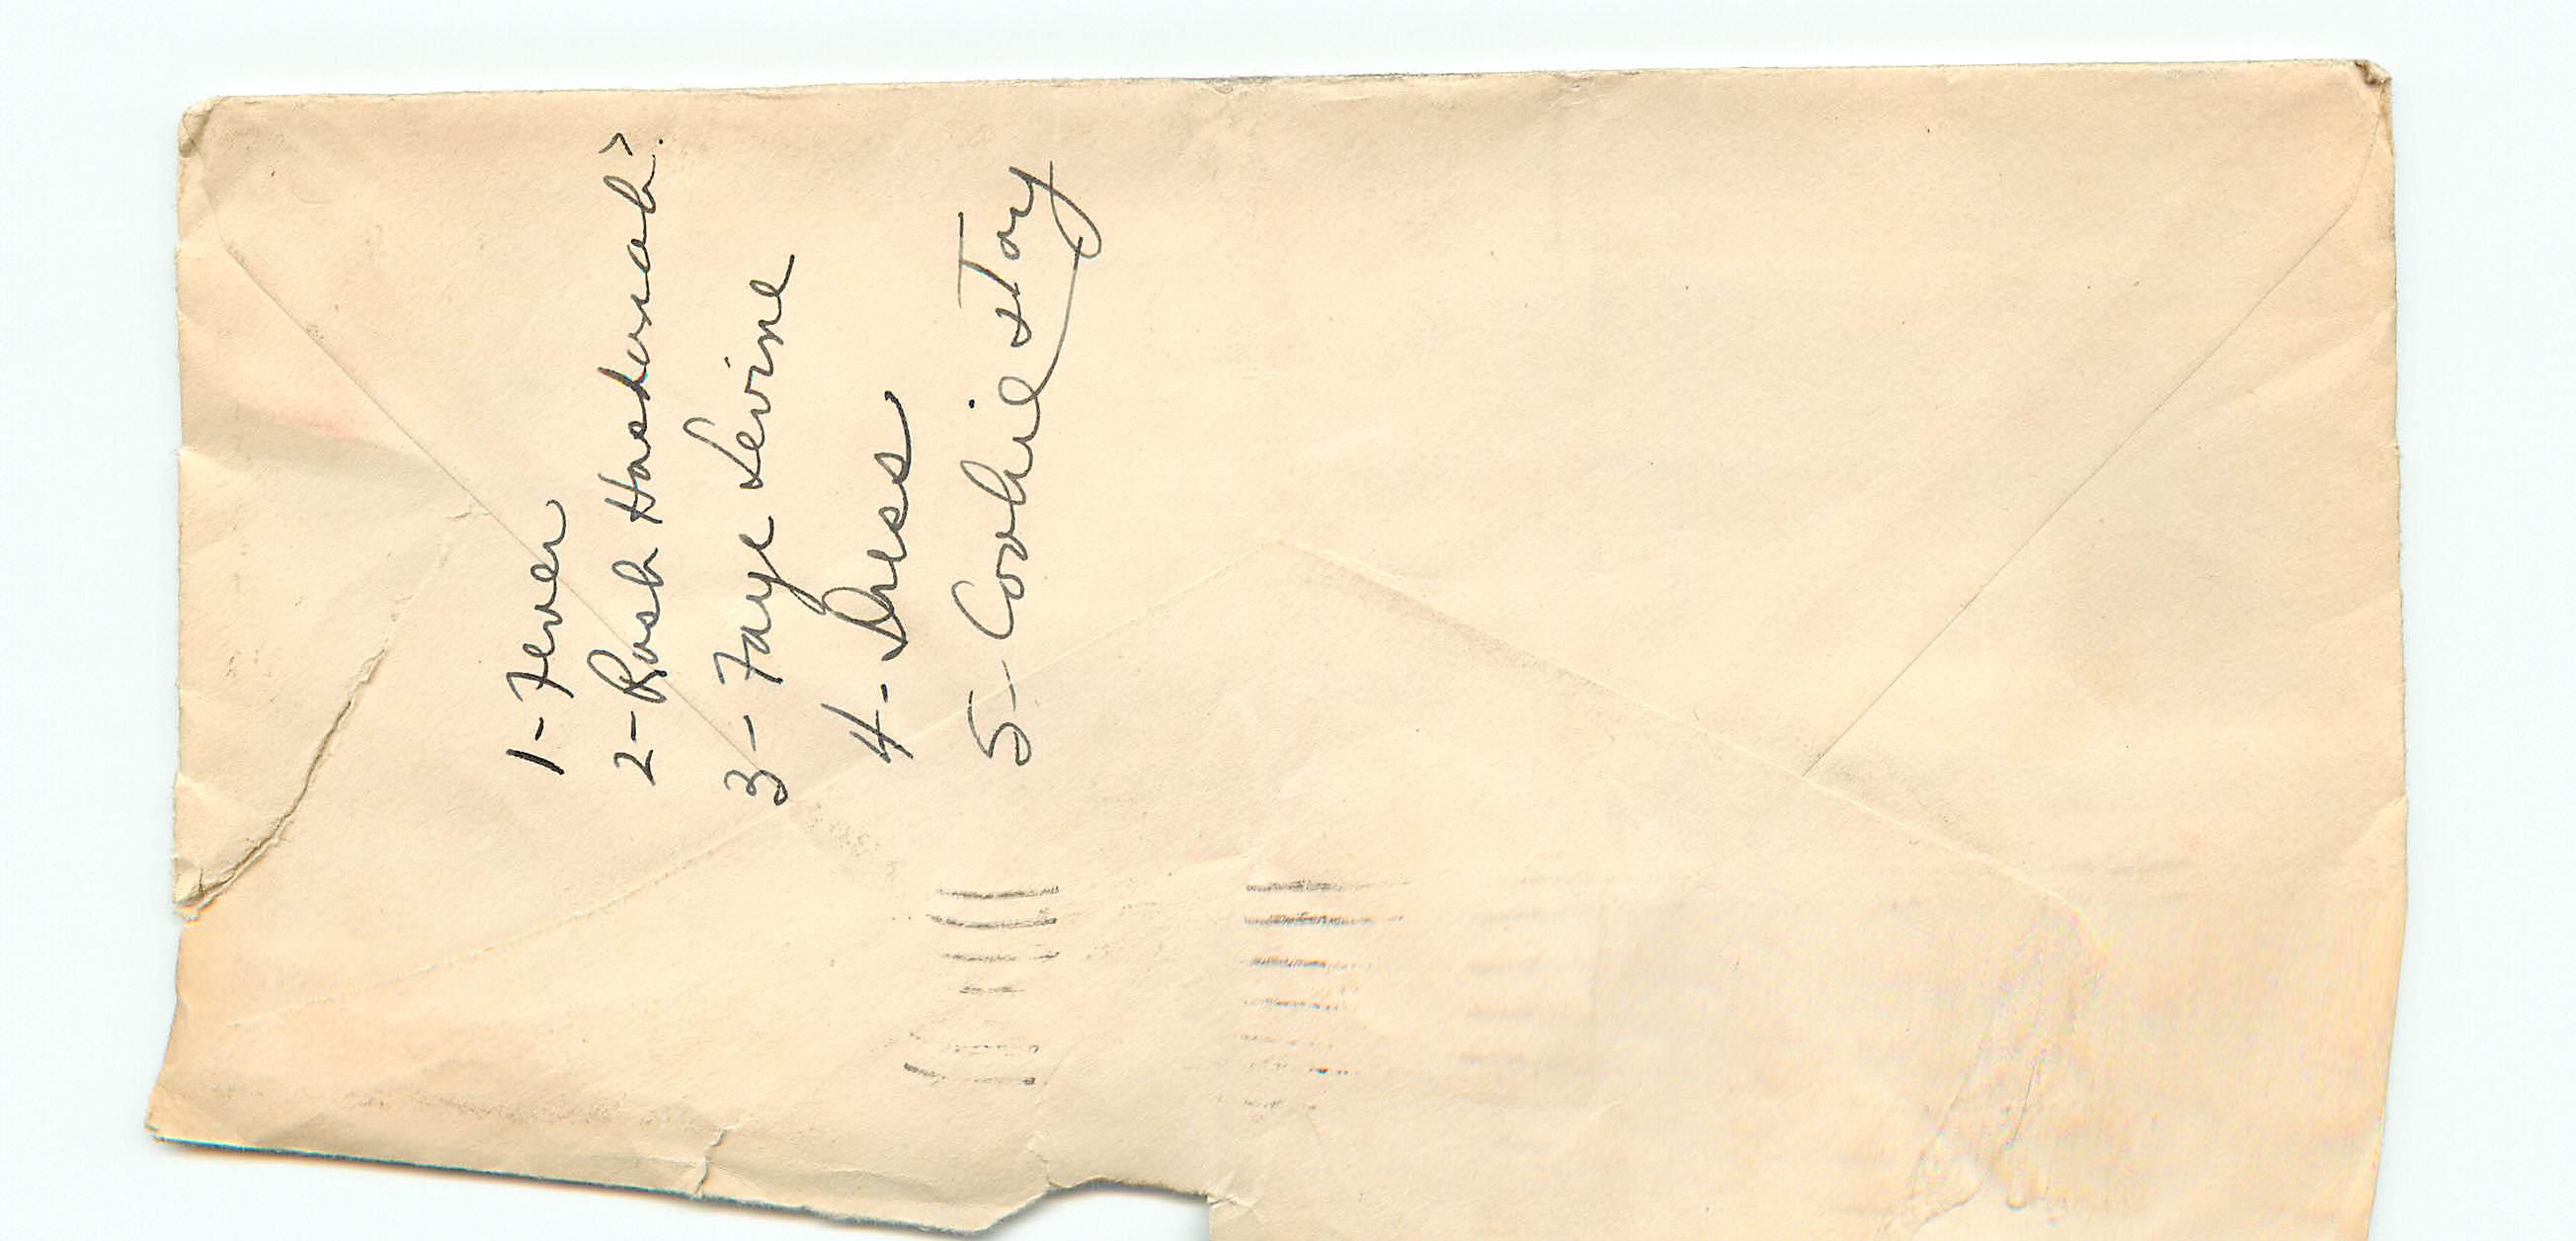 1- Fever
2- Rosh Hashernah?
3- Faye Levine
4- Dress
5- Cookie & Toy